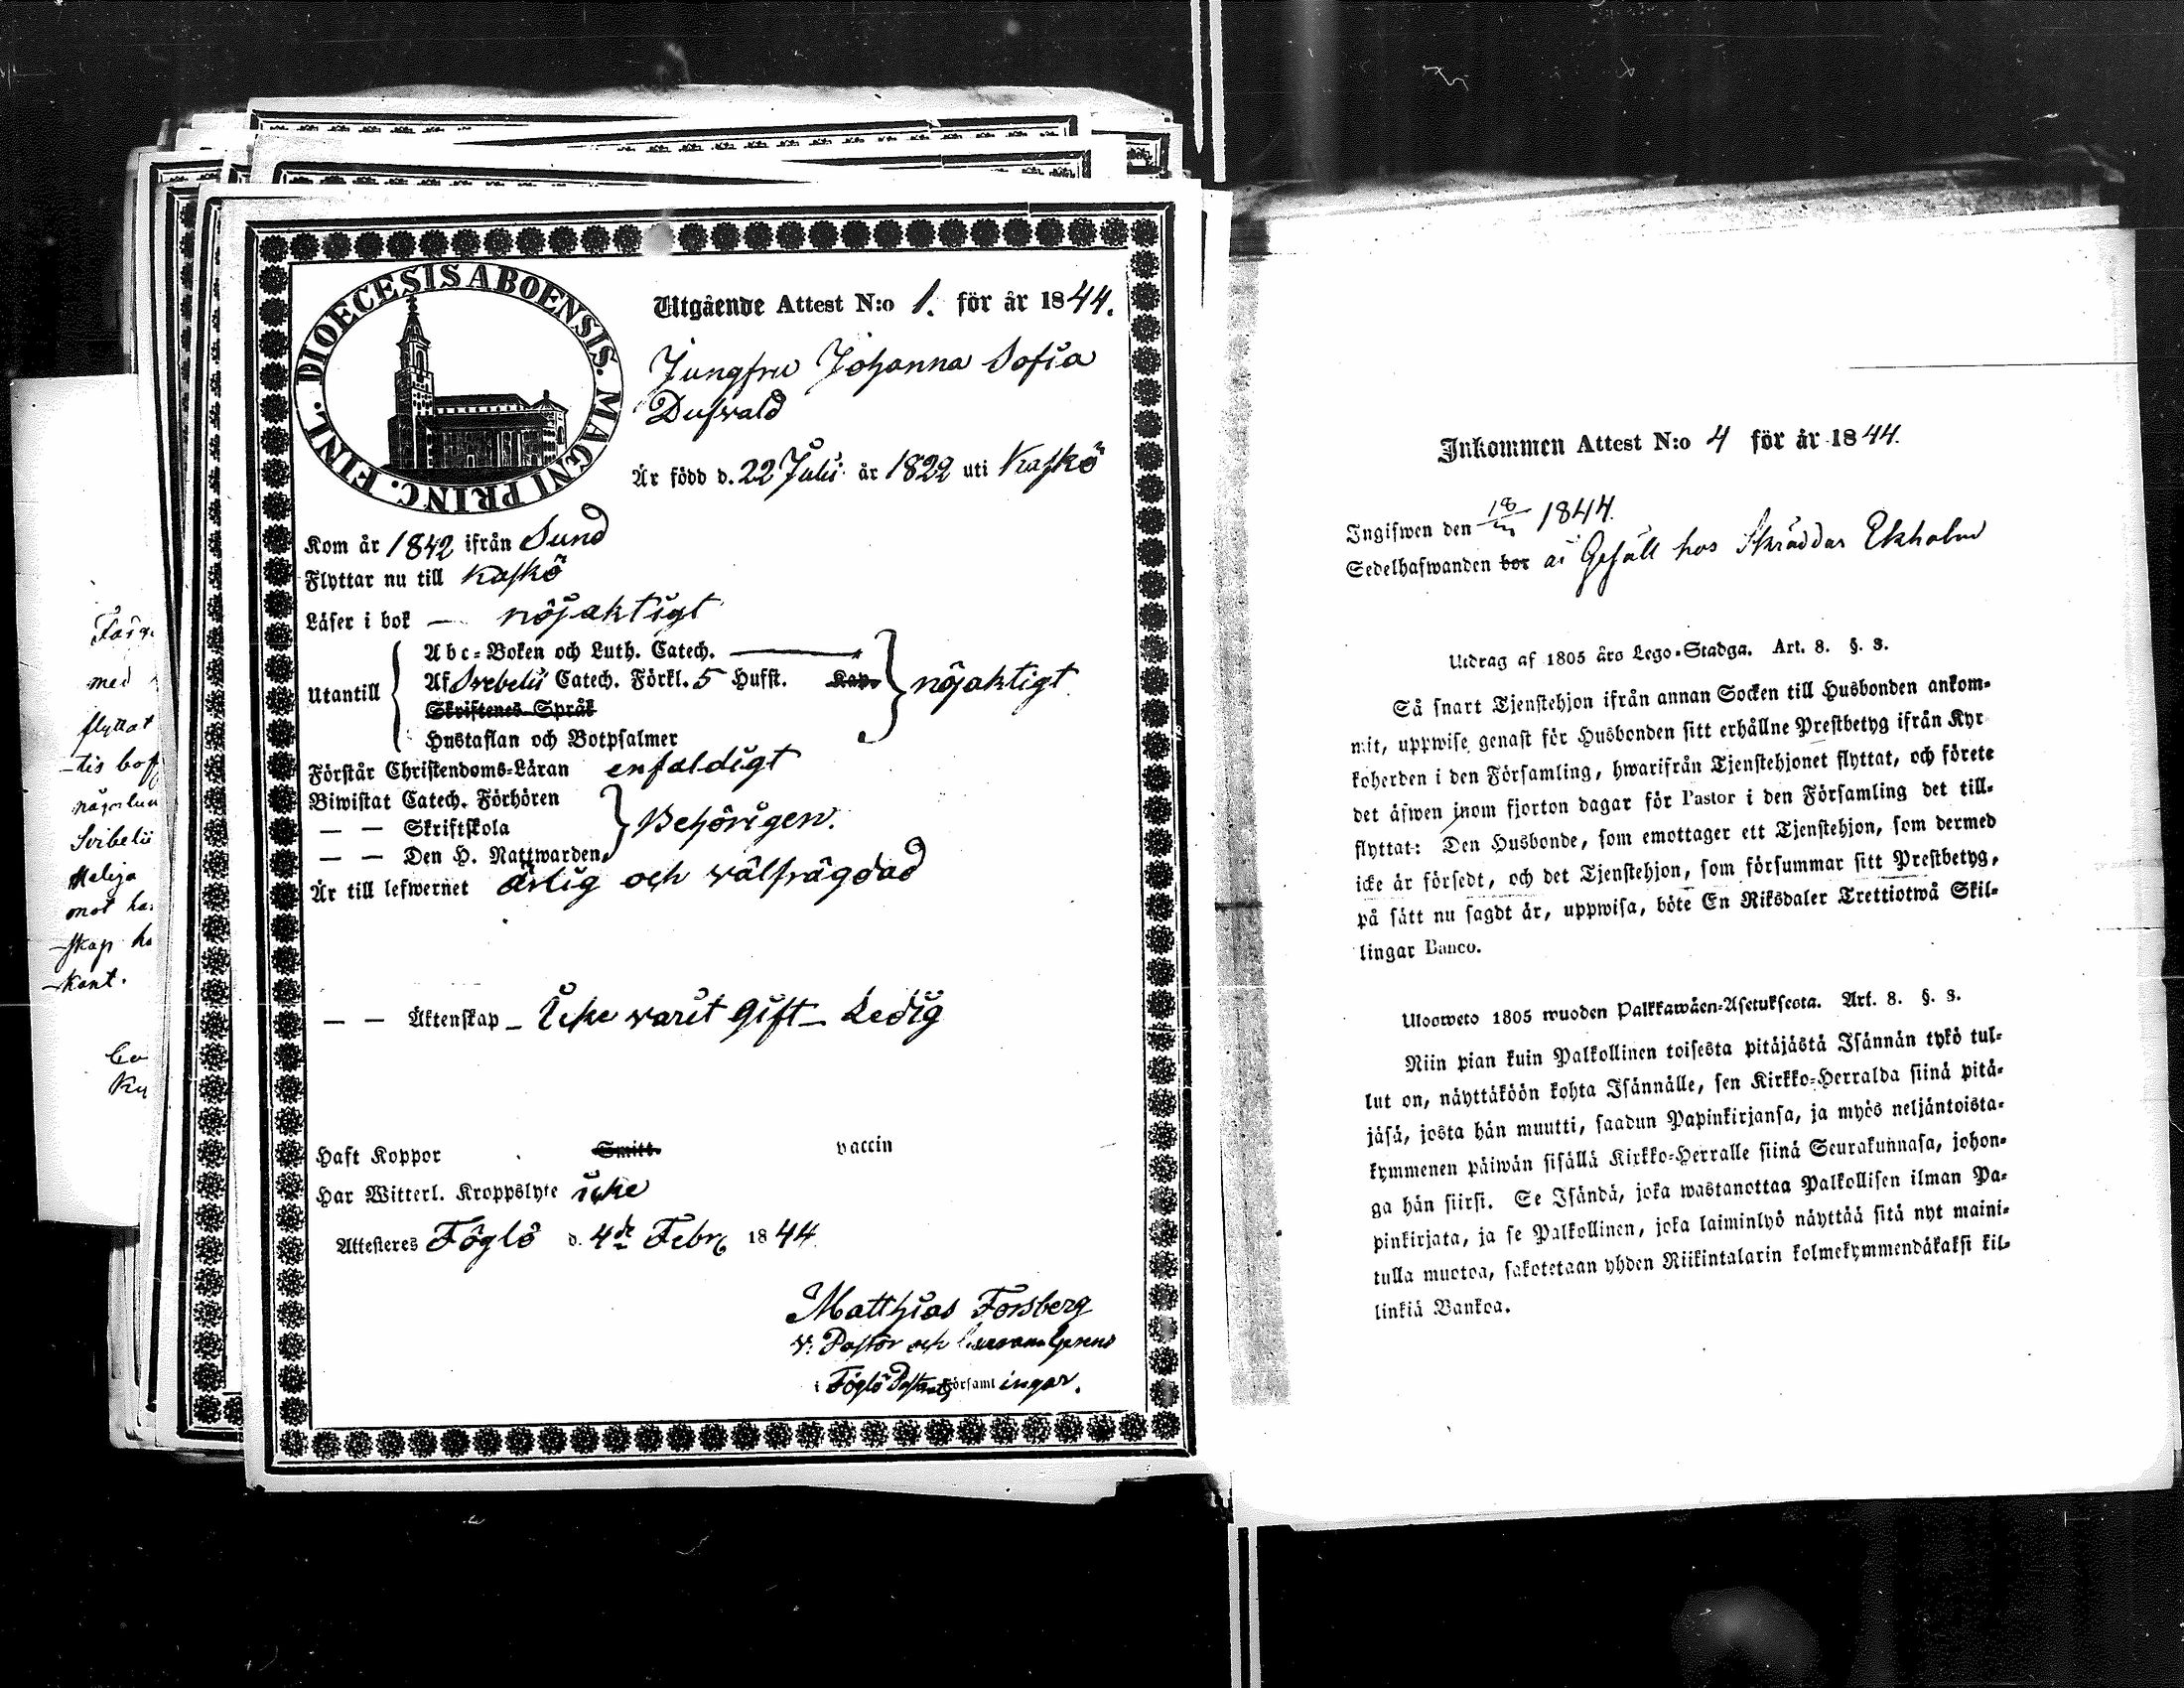 DIOECESIS ABOENSIS. MAGNI PRINC. FINL.
Utgående Attest N:o 1. för år 1844.
Jungfru Johanna Sofia
Dufvald
Är född d. 22 Julii år 1822 uti Kaskö
Kom år 1842 ifrån Sund
Flyttar nu till Kaskö
Läser i bok — nöjaktigt
Utantill
Abc-Boken och Luth. Catech.
Af Svebelii Catech. Förkl. 5 Hufst. Kap. nöjaktigt
Skriftenes Språk
Hustaflan och Botpsalmer
Förstår Christendoms-Läran enfaldigt
Biwistat Catech. Förhören
— — Skriftskola Behörigen.
— — Den H. Nattwarden
Är till lefwernet ärlig och välfrägdad
— — Äktenskap – Icke varit gift – Ledig
Haft Koppor Smitt. vaccin
Har Witterl. Kroppslyte icke
Attesteres Föglö d. 4de Febr. 1844
Matthias Forsberg
V. Pastor och
i Föglö Pastorats Församlingar.
med
flyttat
-tis
Svibelii
Heliga
mot
-skap
-kant.
Inkommen Attest N:o 4 för år 1844.
Ingifwen den 18/ 1844.
Sedelhafwanden bor är Gesäll hos Skräddar Ekholm
Utdrag af 1805 års Lego-Stadga. Art. 8. §. 3.
Så snart Tjenstehjon ifrån annan Socken till Husbonden ankom-
mit, uppwise genast för Husbonden sitt erhållne Prestbetyg ifrån Kyr
koherden i den Församling, hwarifrån Tjenstehjonet flyttat, och förete
det äfwen inom fjorton dagar för Pastor i den Församling det till-
flyttat: Den Husbonde, som emottager ett Tjenstehjon, som dermed
icke är försedt, och det Tjenstehjon, som försummar sitt Prestbetyg,
på sätt nu sagdt är, uppwisa, böte En Riksdaler Trettiotwå Skil-
lingar Banco.
Ulosweto 1805 wuoden Palkkawäen-Asetuksesta. Art. 8. §. 3.
Niin pian kuin Palkollinen toisesta pitäjästä Isännän tykö tul-
lut on, näyttäköön kohta Isännälle, sen Kirkko-Herralda siinä pitä-
jäsä, josta hän muutti, saadun Papinkirjansa, ja myös neljäntoista-
kymmenen päiwän sisällä Kirkko-Herralle siinä Seurakunnasa, johon-
ga hän siirsi. Se Isändä, joka wastanottaa Palkollisen ilman Pa-
pinkirjata, ja se Palkollinen, joka laiminlyö näyttää sitä nyt maini-
tulla muotoa, sakotetaan yhden Riikintalarin kolmekymmendäkaksi kil-
linkiä Bankoa.